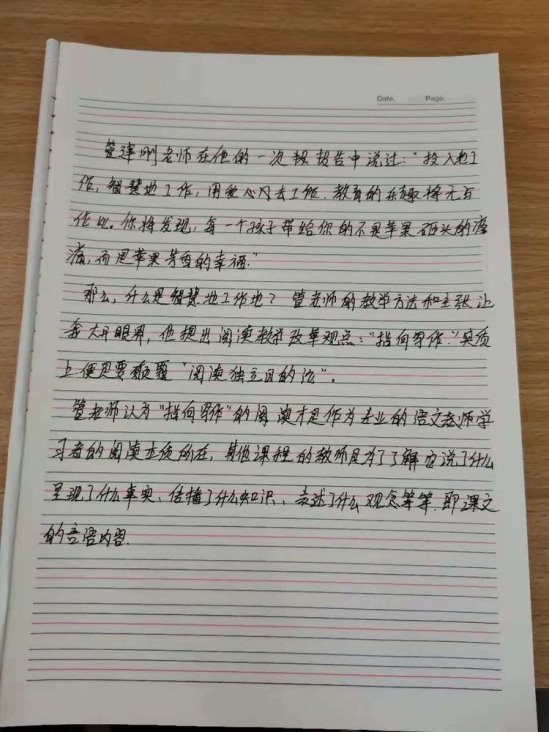 Date. Page.
管建刚老师在他的一次报告中说过："投入地工
作,智慧地工作,用爱心去工作,教育的乐趣将无与
伦比。你将发现,每一个孩子带给你的不是苹果砸头的疼
痛,而是苹果芳香的幸福。"
那么,什么是智慧地工作呢？管老师的教学方法和主张让
我大开眼界,他提出阅读教学改革观点："指向写作."实质
上便是要颠覆"阅读独立目的论"。
管老师认为"指向写作"的阅读才是作为专业的语文老师学
习者的阅读本质所在,其他课程的教师是为了了解 说了什么
呈现了什么事实、传播了什么知识、表述了什么观念等等.即课文
的言语内容.